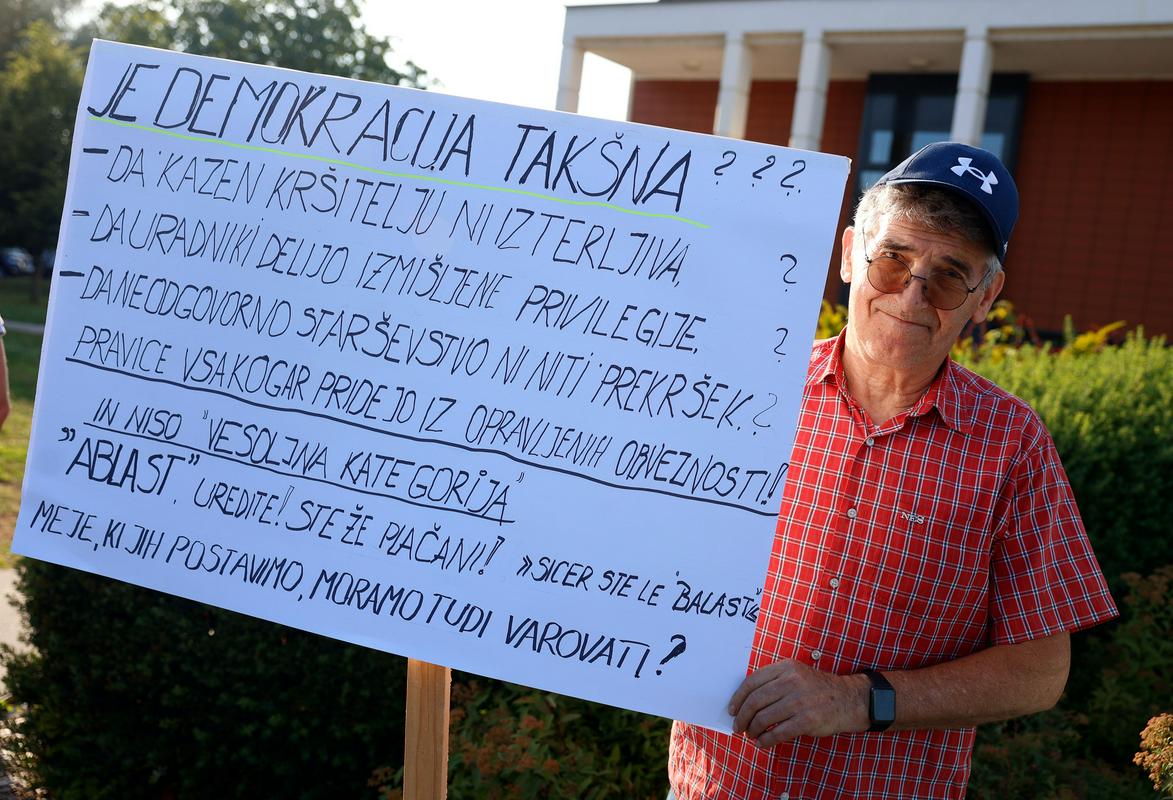 JE DEMOKRACIJA TAKŠNA ???
- DA KAZEN KRŠITELJU NI IZTERLJIVA, ?
- DA URADNIKI DELIJO IZMIŠLJENE PRIVILEGIJE, ?
- DA NEODGOVORNO STARŠEVSTVO NI NITI PREKRŠEK. ?
PRAVICE VSAKOGAR PRIDEJO IZ OPRAVLJENIH OBVEZNOSTI!!
IN NISO "VESOLJNA KATEGORIJA"
"ABLAST". UREDITE! STE ŽE PLAČANI! »SICER STE LE "BALAST"«
MEJE, KI JIH POSTAVIMO, MORAMO TUDI VAROVATI?
NES